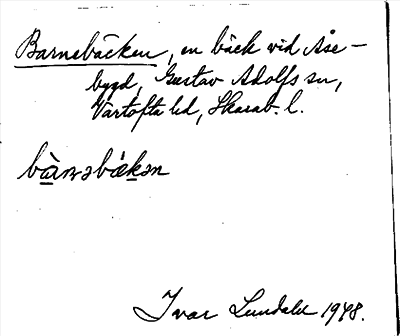 Barnebäcken, en bäck vid Åse-
bygd, Gustav Adolfs sn,
Vartofta hd, Skarab. l.
bàrnəbäkən
Ivar Lundahl 1948.